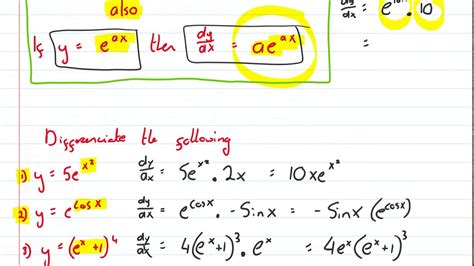 also
If y = e^{ax} then dy/dx = ae^{ax}
dy/dx = e^{10x} . 10
=
Differenciate the following
1) y = 5e^{x²} dy/dx = 5e^{x²} . 2x = 10xe^{x²}
2) y = e^{cosx} dy/dx = e^{cosx} . -Sinx = -Sinx (e^{cosx})
3) y = (e^x+1)^4 dy/dx = 4(e^x+1)^3 . e^x = 4e^x(e^x+1)^3